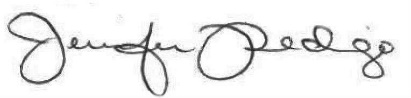 Jennifer Pedigo